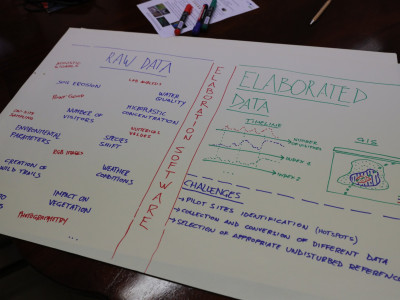 RAW DATA
LAB ANALYSIS
SOIL EROSION
WATER
QUALITY
NUMBER OF
VISITORS
MICROPLASTIC
CONCENTRATION
ENVIRONMENTAL
PARAMETERS
SPECIES
SHIFT
NUMERICAL
VALUES
CREATION OF
WEATHER
CONDITIONS
IMPACT ON
VEGETATION
PHOTOGRAMMETRY
...
ELABORATION SOFTWARE
ELABORATED
DATA
TIMELINE
NUMBER
GIS
CHALLENGES
→ PILOT SITES IDENTIFICATION (HOTSPOTS)
→ COLLECTION AND CONVERSION OF DIFFERENT DATA
→ SELECTION OF APPROPRIATE UNDISTURBED REFERENCE